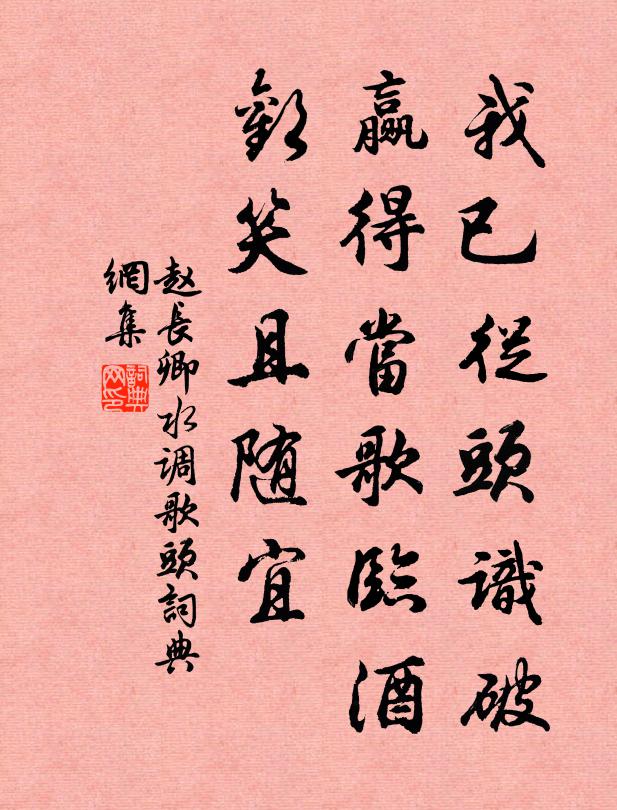 我已從頭識破
贏得當歌臨酒
歡笑且随宜
赵長卿水调歌頭詞典
網集
詞典
网印